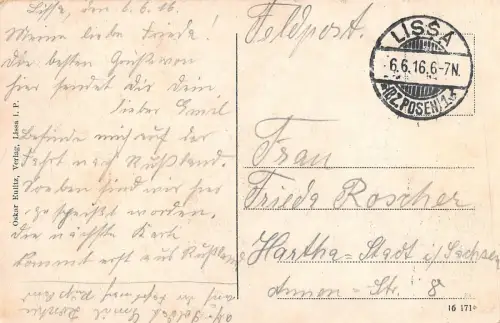 Lissa, den 6.6.16.
Meine liebe Frieda!
Die besten Grüße von
hier sendet dir dein
lieber Emil
Befinde mich auf der
Fahrt nach Rußland.
Soeben sind wir hier
worden.
Die nächste Karte
kommt erst aus Rußland
Oskar Eulitz, Verlag, Lissa i. P.
Feldpost.
LISSA
6.6.16.6-7N.
(BZ. POSEN) 1
Frau
Frieda Roscher
Hartha-Stadt i/Sachsen
Annen-Str. 8
16 171